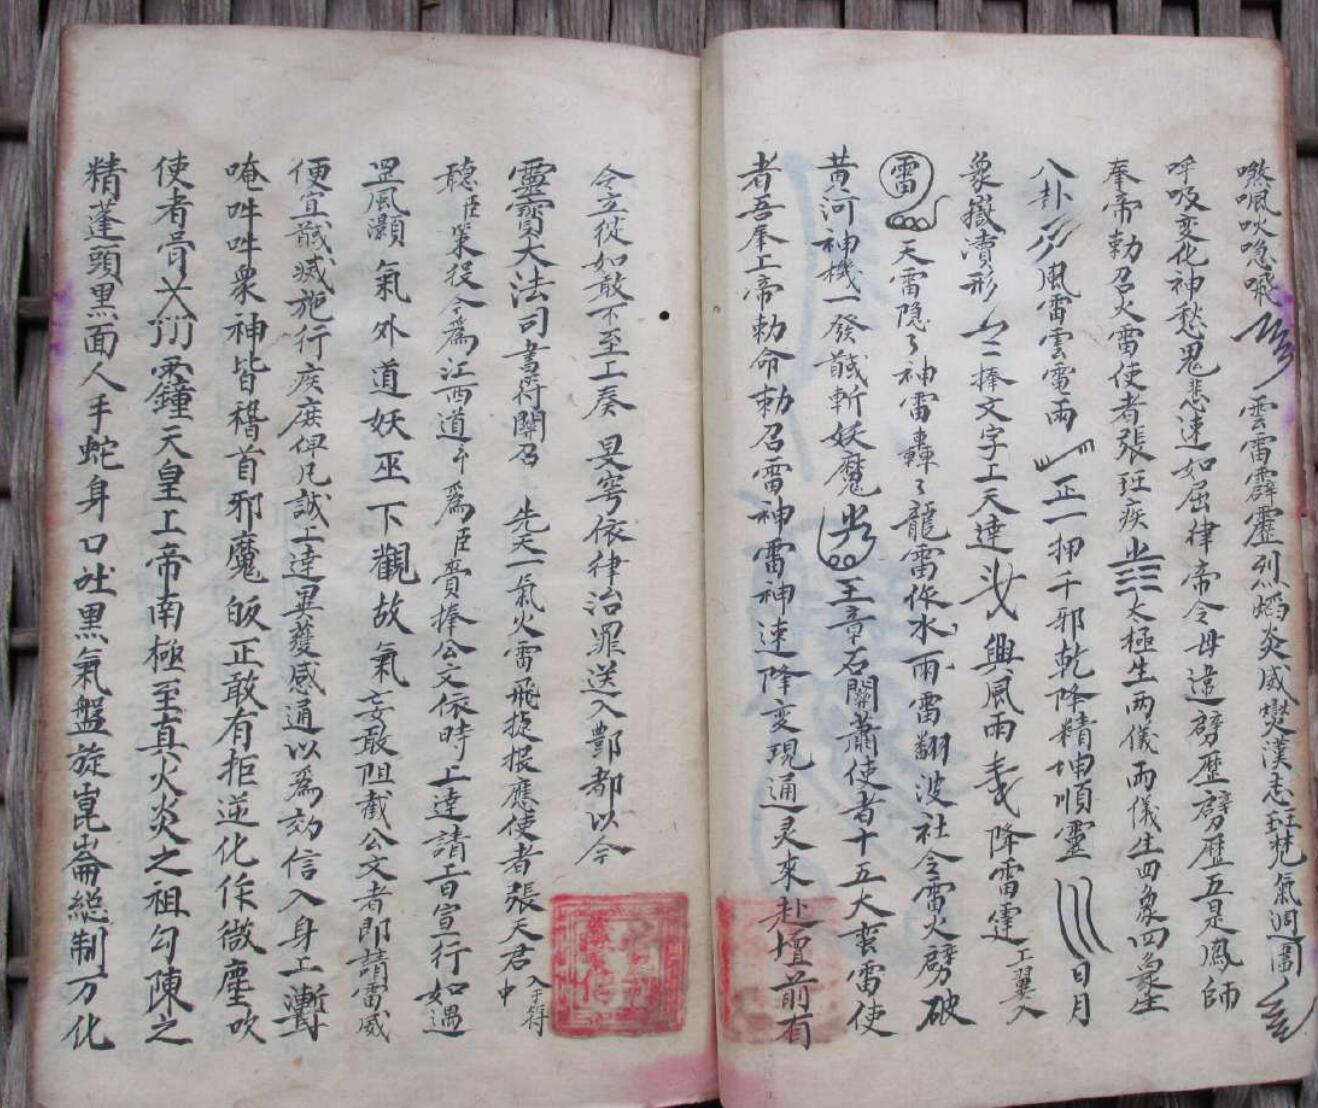 雲雷霹靂烈焰炎威
呼吸变化神愁鬼悲速如屈律帝令毋違劈歷劈歷五是鳳師
奉帝勅召火雷使者張珏疾太極生两儀两儀生四象四象生
八卦風雷雲雷雨正一押千邪乾降精坤順靈日月
象嶽瀆形捧文字工天達興風雨降雷霆工翼入
雷天雷隐々神雷轟々龍雷作水雨雷翻波社令雷火劈破
黄河神機一發馘斬妖魔王章石開蕭使者十五大蛮雷使
者吾奉上帝勅命勅召雷神雷神速降变現通灵來赴壇前有
令立從如敢不至上奏旻穹依律治罪送入酆都以今
靈寶大法司書符開召先天一氣火雷飛捷报應使者張天君入于符中
聽臣策役今為江西道為臣賫捧公文依時上達請旨宣行如遇
罡風灝氣外道妖巫下觀故氣妄敢阻截公文者即請雷威
便宜馘滅施行疾庶俾凡誠上達畢獲感通以為効信入身工
唵吽吽衆神皆稽首邪魔皈正敢有拒逆化作微塵吹
使者天皇工帝南極至真火炎之祖勾陳之
精蓬頭黑面人手蛇身口吐黑氣盤旋崑崙総制万化